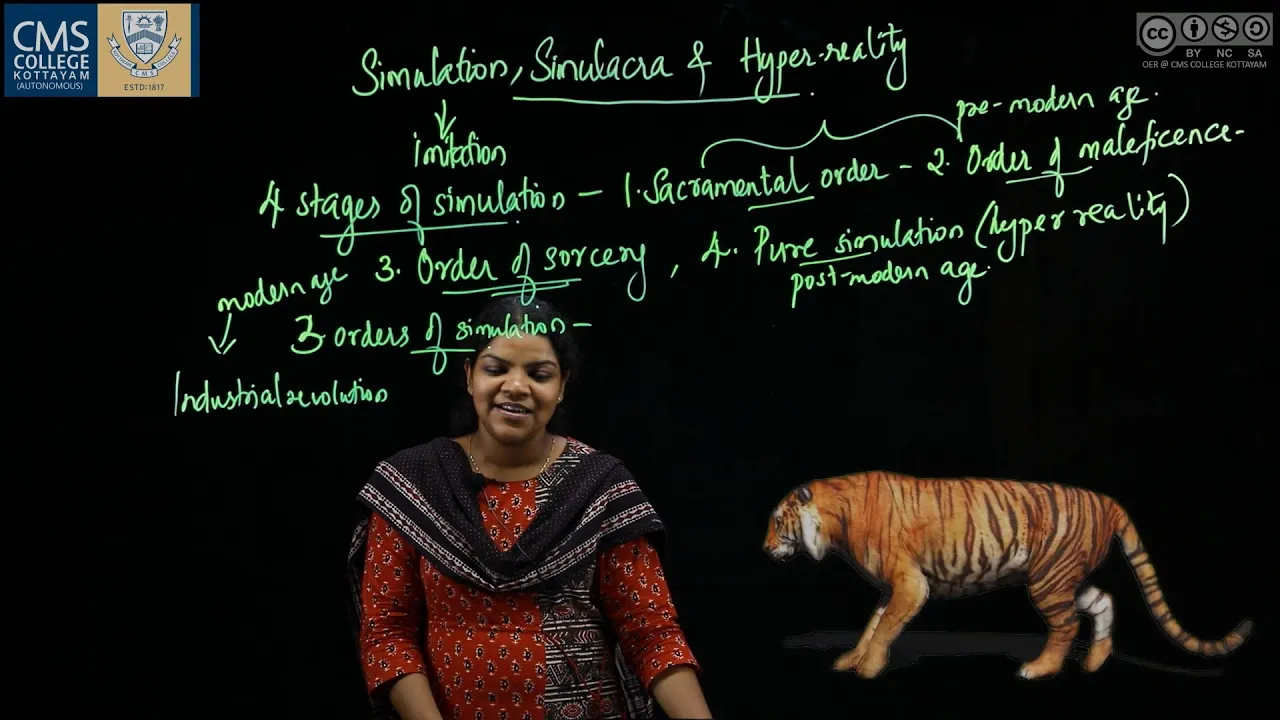 CMS
COLLEGE
KOTTAYAM
(AUTONOMOUS)
ESTD:1817
BY NC SA
OER @ CMS COLLEGE KOTTAYAM
Simulation, Simulacra & Hyper-reality
imitation
pre-modern age.
4 stages of simulation - 1. Sacramental order - 2. Order of maleficence-
modern age 3. Order of sorcery, 4. Pure simulation (hyper reality)
post-modern age.
3 orders of simulation -
Industrial revolution